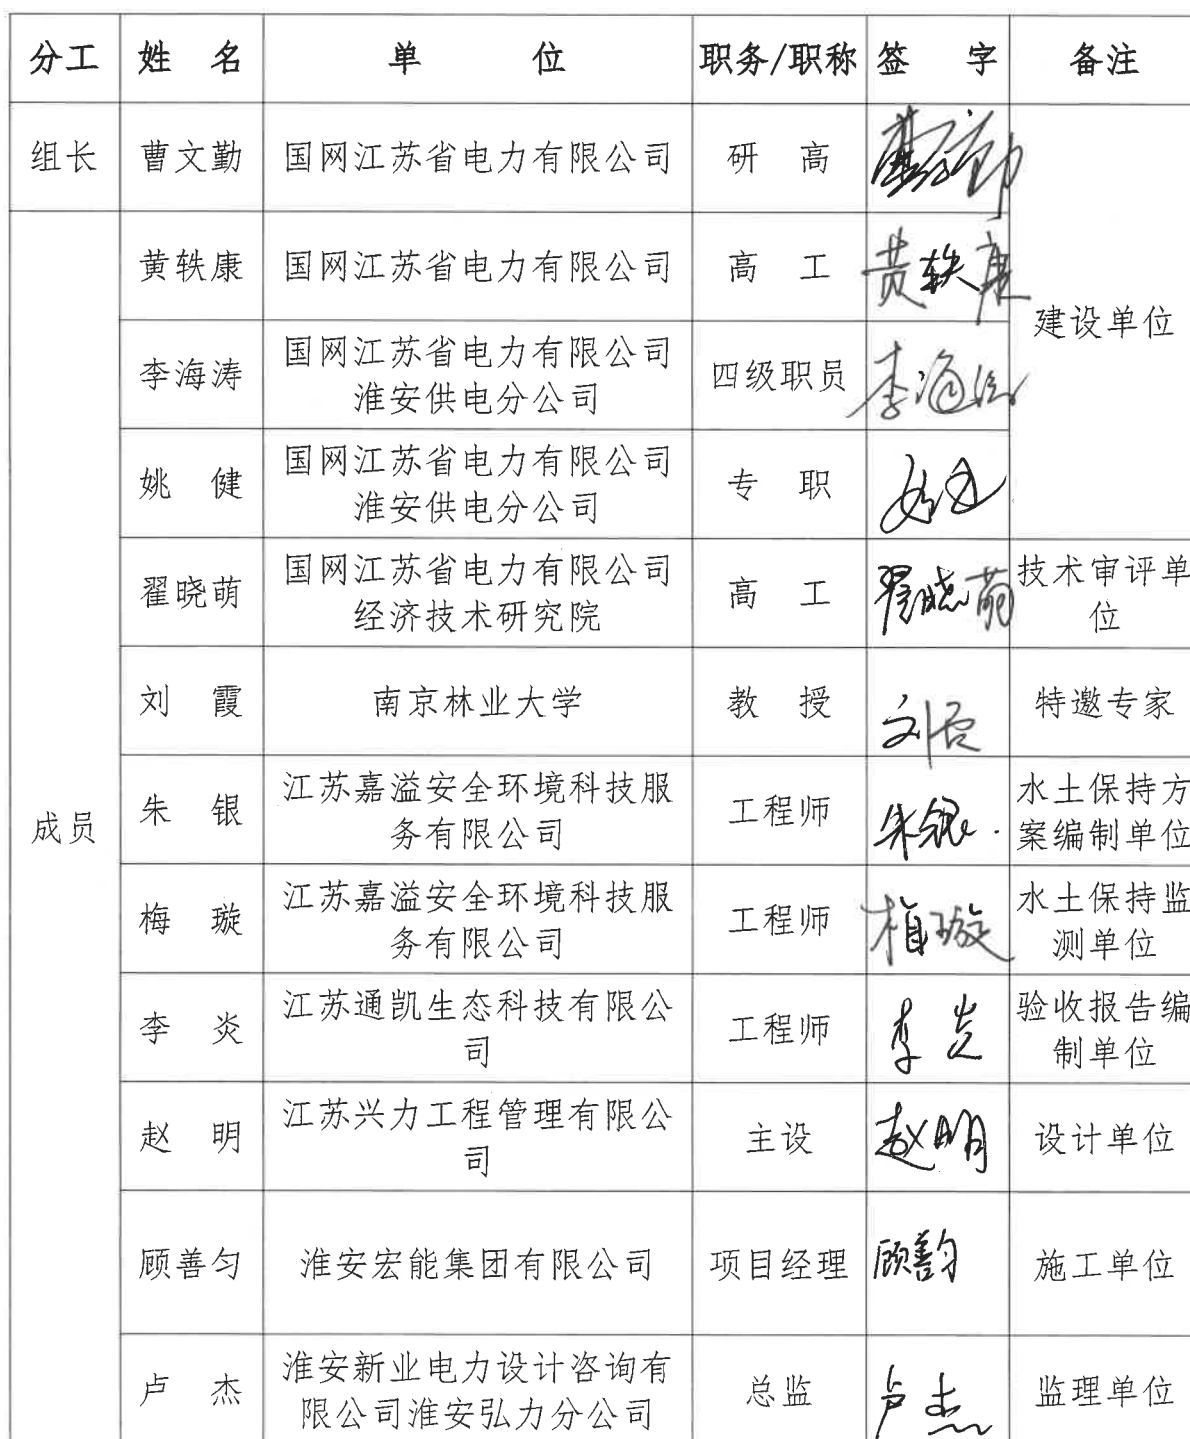 分工 姓 名 单 位 职务/职称 签 字 备注
组长 曹文勤 国网江苏省电力有限公司 研 高 曹文勤
黄轶康 国网江苏省电力有限公司 高 工 黄轶康
建设单位
李海涛 国网江苏省电力有限公司
淮安供电分公司 四级职员 李海涛
姚 健 国网江苏省电力有限公司
淮安供电分公司 专 职
翟晓萌 国网江苏省电力有限公司
经济技术研究院 高 工 翟晓萌 技术审评单
位
刘 霞 南京林业大学 教 授 刘霞 特邀专家
成员
朱 银 江苏嘉溢安全环境科技服
务有限公司 工程师 朱银 水土保持方
案编制单位
梅 璇 江苏嘉溢安全环境科技服
务有限公司 工程师 梅璇 水土保持监
测单位
李 炎 江苏通凯生态科技有限公
司 工程师 李炎 验收报告编
制单位
赵 明 江苏兴力工程管理有限公
司 主设 赵明 设计单位
顾善匀 淮安宏能集团有限公司 项目经理 顾善匀 施工单位
卢 杰 淮安新业电力设计咨询有
限公司淮安弘力分公司 总监 卢杰 监理单位